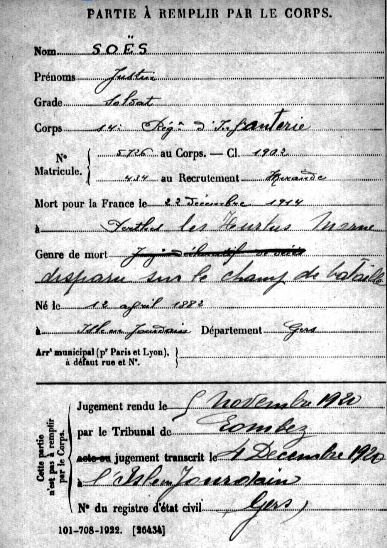 PARTIE À REMPLIR PAR LE CORPS.
Nom SOËS
Prénoms Justin
Grade Soldat
Corps 14e Régt d'Infanterie
N° Matricule. { 5726 au Corps. — Cl. 1902
434 au Recrutement Mirande
Mort pour la France le 22 décembre 1914
à Perthes les Hurlus Marne
Genre de mort
disparu sur le champ de bataille
Né le 12 avril 1882
à Isle en Jourdain Département Gers
Arrt municipal (pr Paris et Lyon), }
à défaut rue et N°.
Cette partie n'est pas à remplir par le Corps.
Jugement rendu le 5 novembre 1920
par le Tribunal de Lombez
acte ou jugement transcrit le 4 Decembre 1920
à l'Isle en Jourdain
N° du registre d'état civil (Gers)
101-708-1922. [26434]